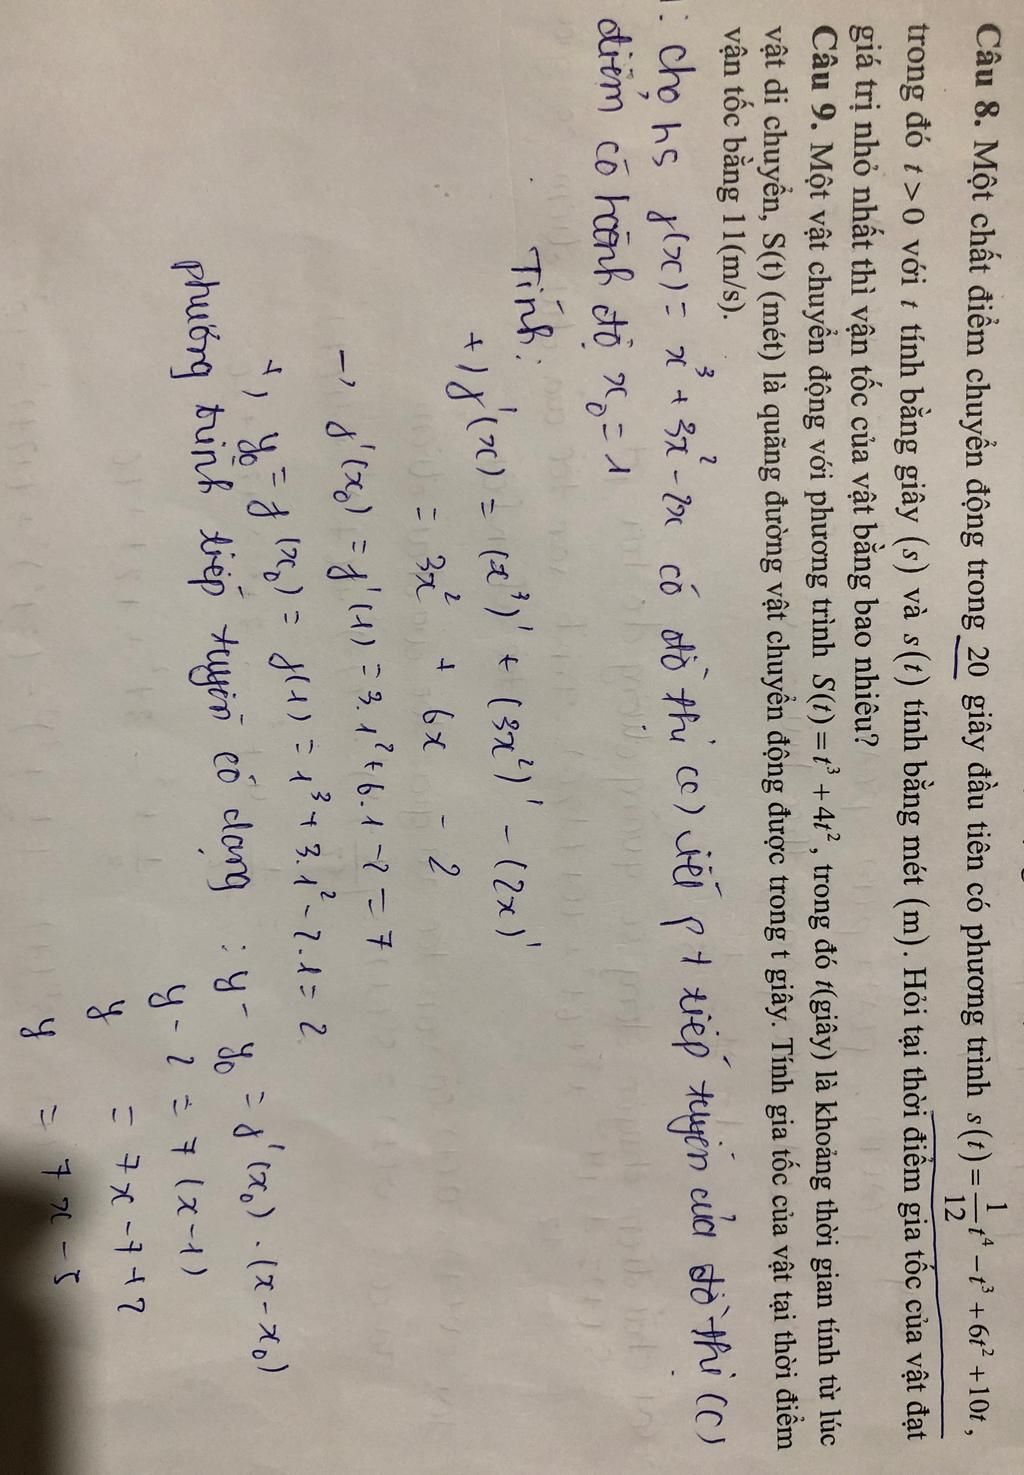 Câu 8. Một chất điểm chuyển động trong 20 giây đầu tiên có phương trình s(t) = 1/12 t⁴ − t³ + 6t² + 10t ,
trong đó t > 0 với t tính bằng giây (s) và s(t) tính bằng mét (m). Hỏi tại thời điểm gia tốc của vật đạt
giá trị nhỏ nhất thì vận tốc của vật bằng bao nhiêu?
Câu 9. Một vật chuyển động với phương trình S(t) = t³ + 4t² , trong đó t(giây) là khoảng thời gian tính từ lúc
vật di chuyển, S(t) (mét) là quãng đường vật chuyển động được trong t giây. Tính gia tốc của vật tại thời điểm
vận tốc bằng 11(m/s).
: cho hs f(x) = x³ + 3x² - 2x có đồ thị (C) viết pt tiếp tuyến của đồ thị (C)
điểm có hoành độ x₀ = 1
Tính:
+) f'(x) = (x³)' + (3x²)' - (2x)'
= 3x² + 6x - 2
→ f'(x₀) = f'(1) = 3.1² + 6.1 - 2 = 7
+) y₀ = f(x₀) = f(1) = 1³ + 3.1² - 2.1 = 2
phương trình tiếp tuyến có dạng : y - y₀ = f'(x₀) . (x - x₀)
y - 2 = 7 (x - 1)
y = 7x - 7 + 2
y = 7x - 5